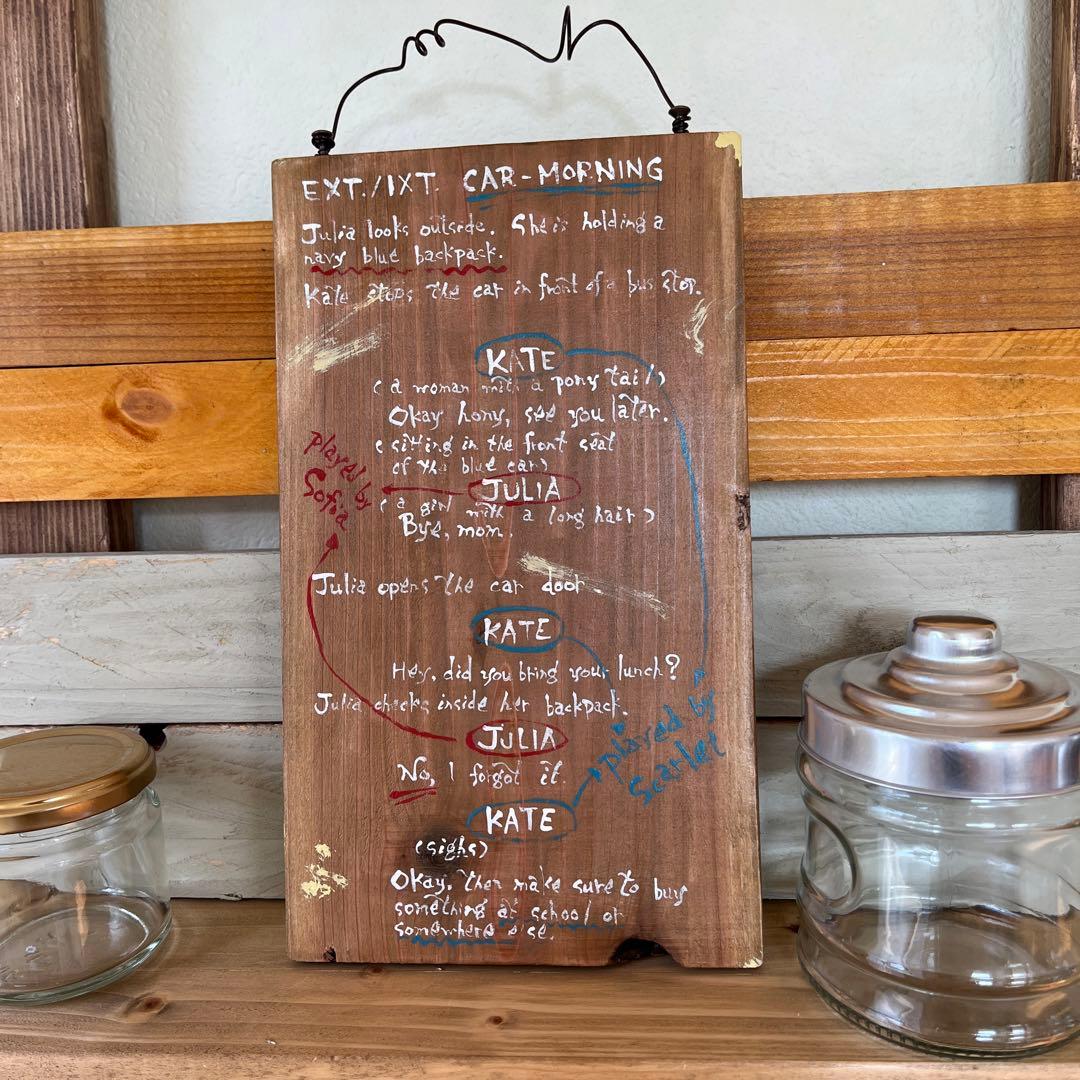 EXT./IXT. CAR-MORNING
Julia looks outside. She is holding a
navy blue backpack.
Kate stops the car in front of a bus stop.
KATE
(a woman with a pony tail)
Okay hony, see you later.
(sitting in the front seat
of the blue car)
JULIA
(a girl with a long hair)
Bye, mom.
played by
Sofia
Julia opens the car door
KATE
Hey, did you bring your lunch?
Julia checks inside her backpack.
JULIA
No, I forgot it.
played by
Scarlet
KATE
(sighs)
Okay, then make sure to buy
something at school or
somewhere else.